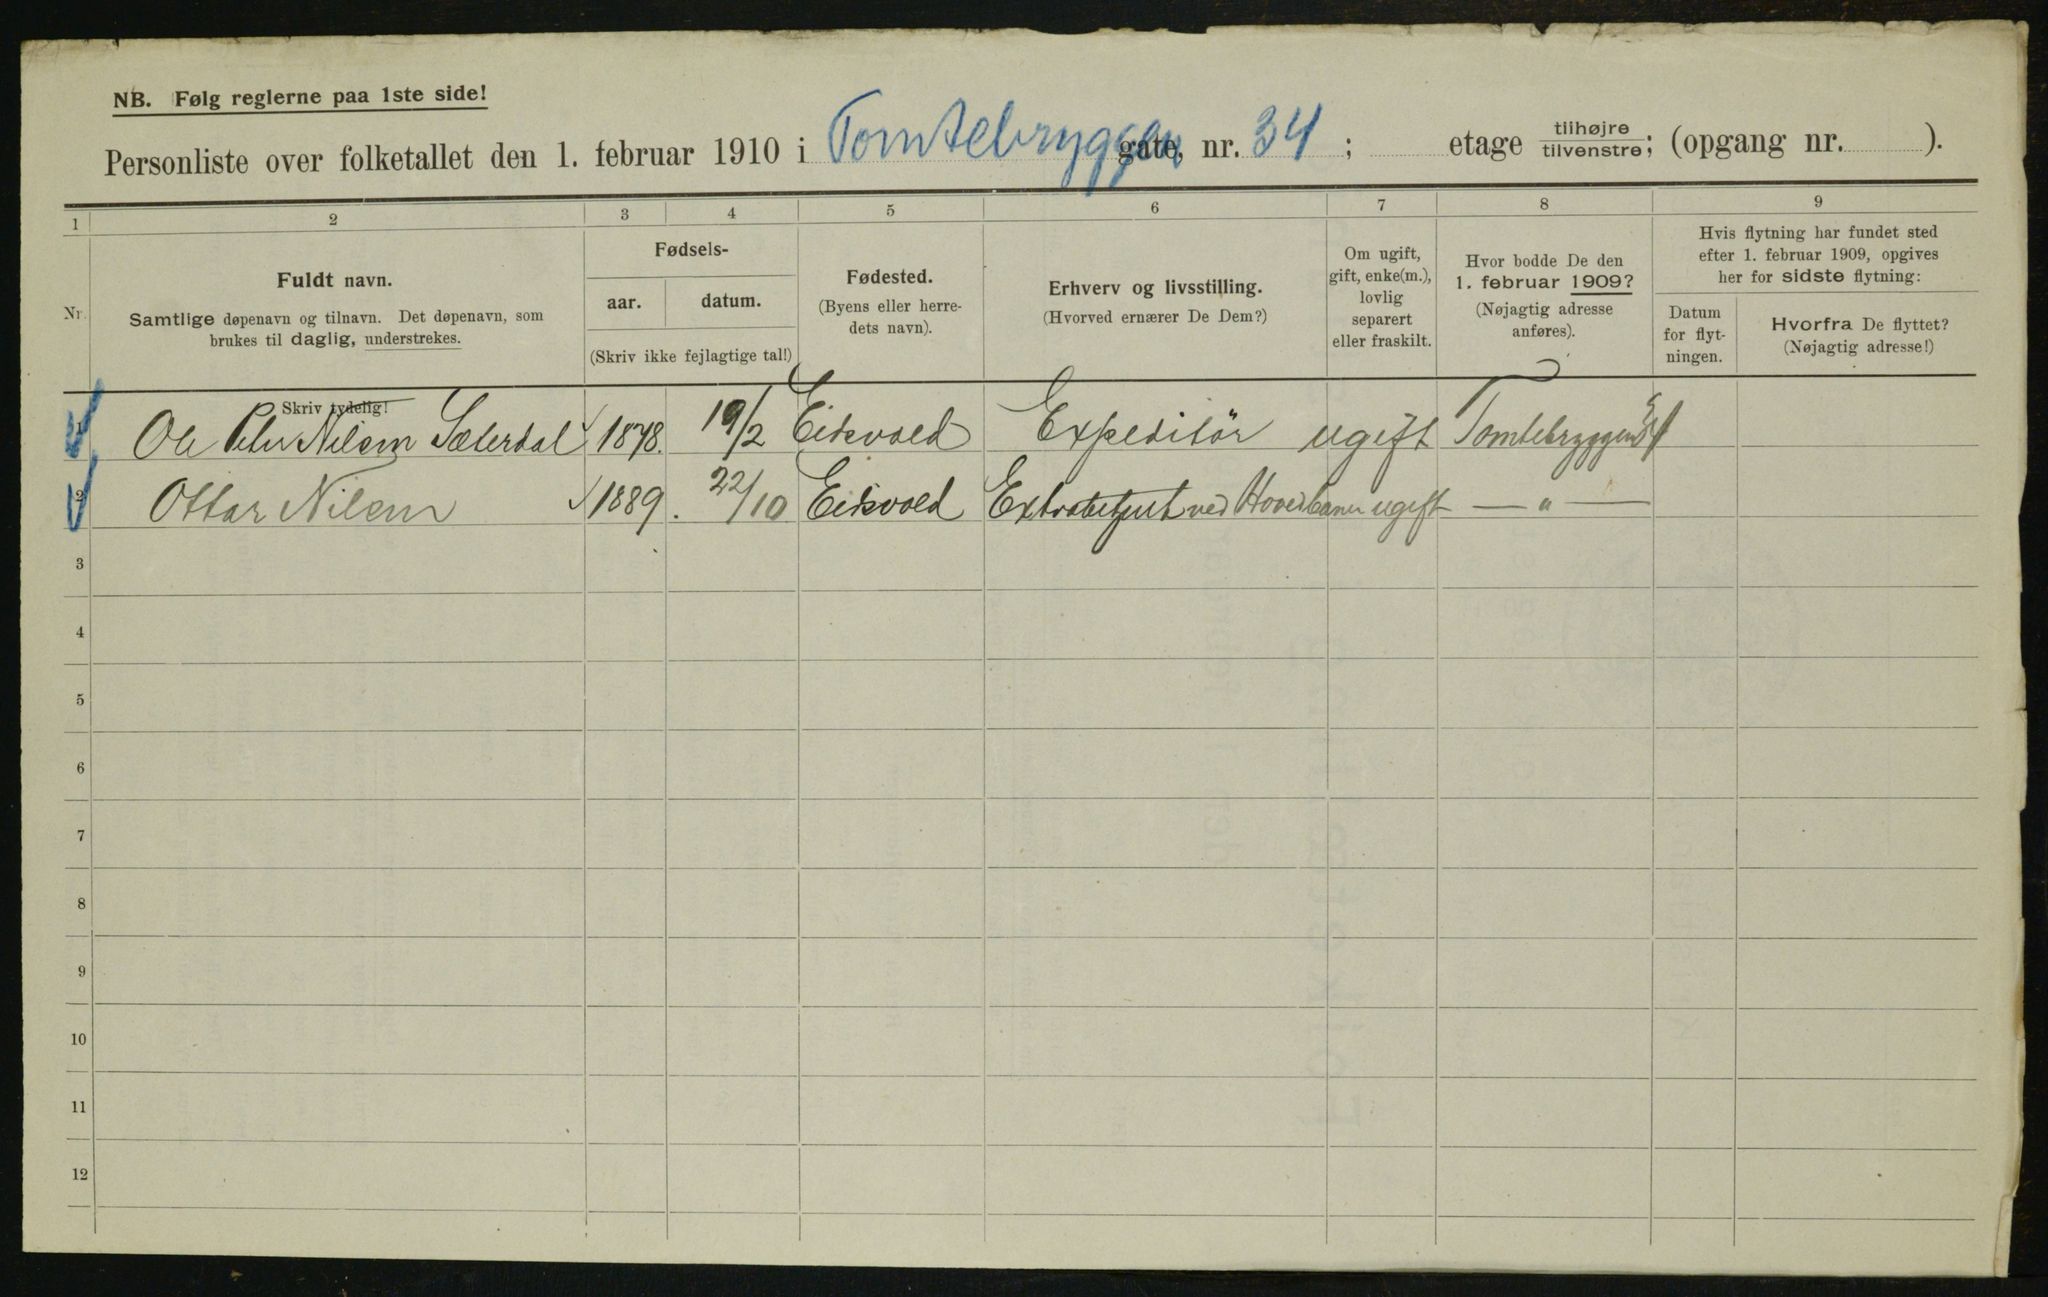 NB. Følg reglerne paa 1ste side!
Personliste over folketallet den 1. februar 1910 i Tomtebryggen gate, nr. 34 ; etage tilhøjre / tilvenstre; (opgang nr. ).
1 2 3 4 5 6 7 8 9
Nr.
Fuldt navn.
Samtlige døpenavn og tilnavn. Det døpenavn, som
brukes til daglig, understrekes.
Skriv tydelig!
Fødsels-
aar. datum.
(Skriv ikke fejlagtige tal!)
Fødested.
(Byens eller herre-
dets navn).
Erhverv og livsstilling.
(Hvorved ernærer De Dem?)
Om ugift,
gift, enke(m.),
lovlig
separert
eller fraskilt.
Hvor bodde De den
1. februar 1909?
(Nøjagtig adresse
anføres).
Hvis flytning har fundet sted
efter 1. februar 1909, opgives
her for sidste flytning:
Datum
for flyt-
ningen.
Hvorfra De flyttet?
(Nøjagtig adresse!)
1 Ole Peter Nilsen Sæterdal 1878. 19/2 Eidsvold Expeditör ugift Tomtebryggen 34
2 Ottar Nilsen 1889. 22/10 Eidsvold Extrabetjent ved Hovedbanen ugift — „ —
3
4
5
6
7
8
9
10
11
12